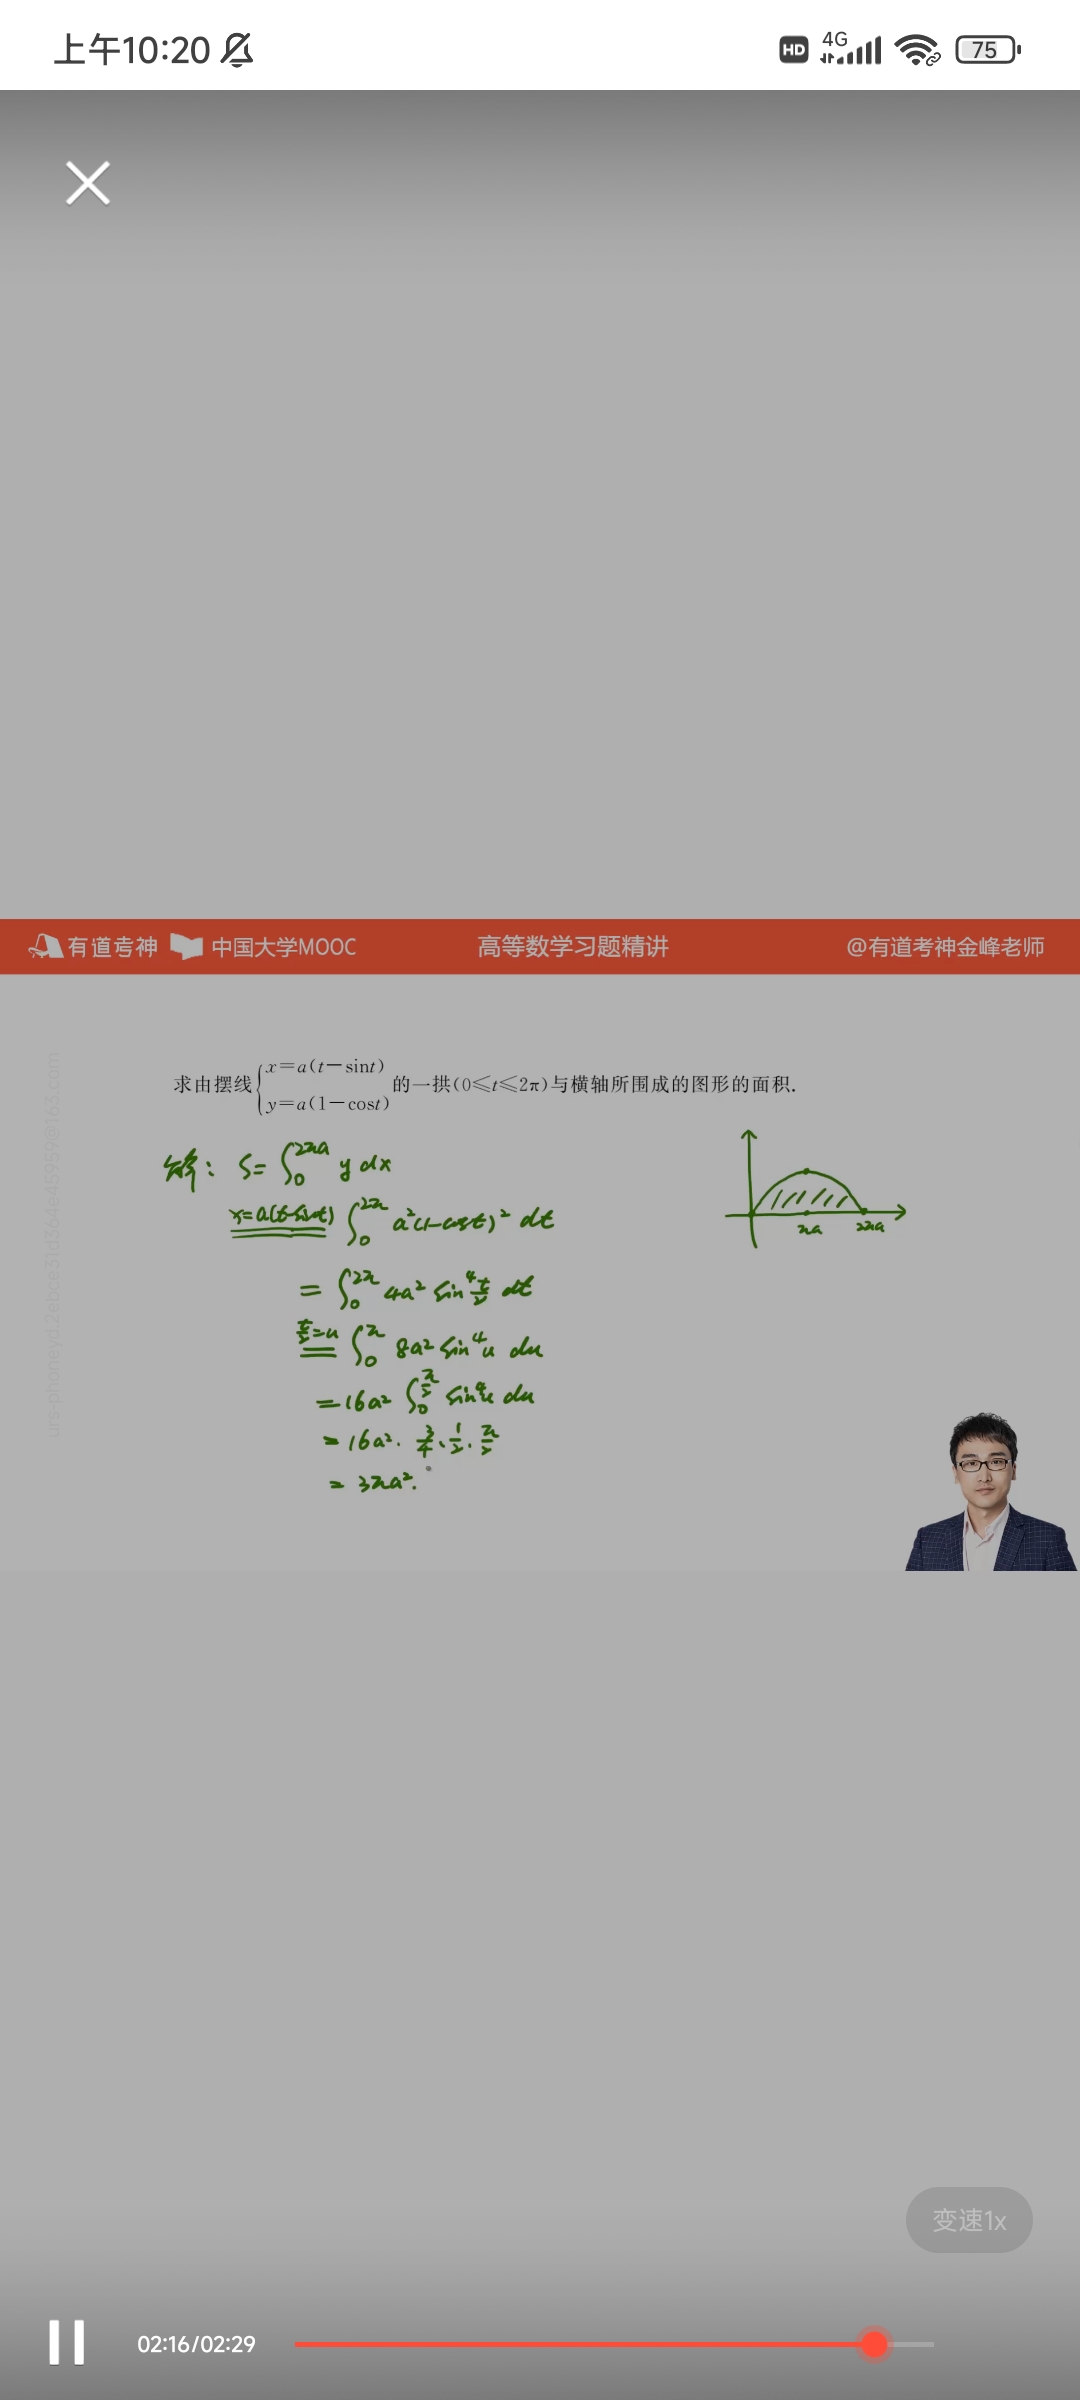 上午10:20 HD 4G 75
有道考神 中国大学MOOC 高等数学习题精讲 @有道考神金峰老师
求由摆线{x=a(t-sint) y=a(1-cost)的一拱(0≤t≤2π)与横轴所围成的图形的面积.
解: S=∫₀^{2πa} y dx
x=a(t-sint) ∫₀^{2π} a²(1-cost)² dt
= ∫₀^{2π} 4a² sin⁴ t/2 dt
t/2=u ∫₀^π 8a² sin⁴u du
=16a² ∫₀^{π/2} sin⁴u du
=16a²·3/4·1/2·π/2
=3πa².
πa 2πa
变速1x
02:16/02:29